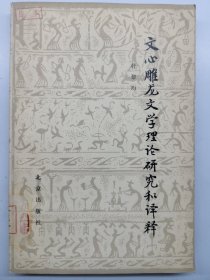 文心雕龙文学理论研究和译释
杜黎均
北京出版社